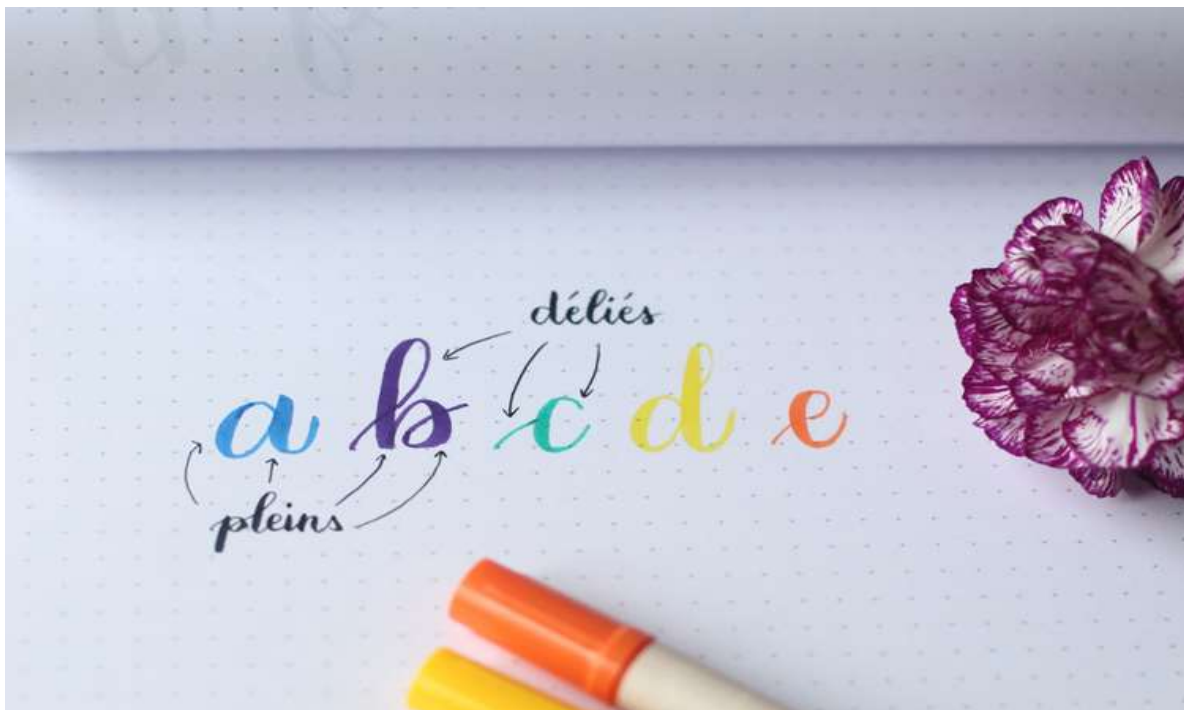 déliés
a b c d e
pleins